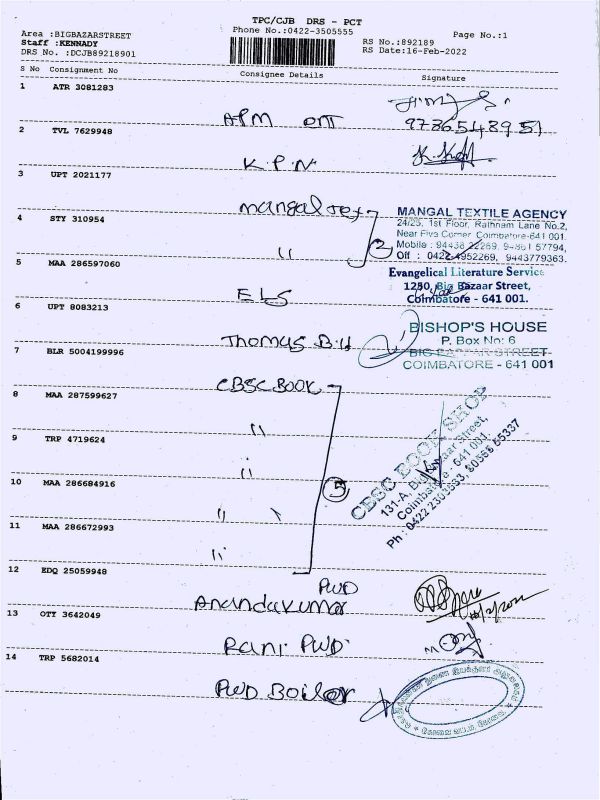 TPC/CJB DRS - PCT
Phone No.:0422-3505555
Page No.:1
Area :BIGBAZARSTREET
Staff :KENNADY
DRS No. :DCJB89218901
RS No.:892189
RS Date:16-Feb-2022
S No Consignment No Consignee Details Signature
1 ATR 3081283
APM ent
9786548951
2 TVL 7629948
K.P.N.
3 UPT 2021177
mangal Tex
MANGAL TEXTILE AGENCY
24/25, 1st Floor, Rathnam Lane No.2,
Near Five Corner Coimbatore-641 001.
Mobile : 94438 22269, 94861 57794,
Off : 0422-4952269, 9443779363.
4 STY 310954
"
2
5 MAA 286597060
ELS
Evangelical Literature Service
1250, Big Bazaar Street,
Coimbatore - 641 001.
6 UPT 8083213
Thomas B.H
BISHOP'S HOUSE
P. Box No: 6
BIG BAZAAR STREET
COIMBATORE - 641 001
7 BLR 5004199996
CBSC BOOK
8 MAA 287599627
"
9 TRP 4719624
"
10 MAA 286684916
"
11 MAA 286672993
"
5
CBSC BOOK SHOP
131-A, Big Bazaar Street,
Coimbatore - 641 001.
Ph : 0422 2303633, 80568 55337
12 EDQ 25059948
PWD
Anandakumar
13 OTY 3642049
Rani PWD
14 TRP 5682014
PWD Boiler